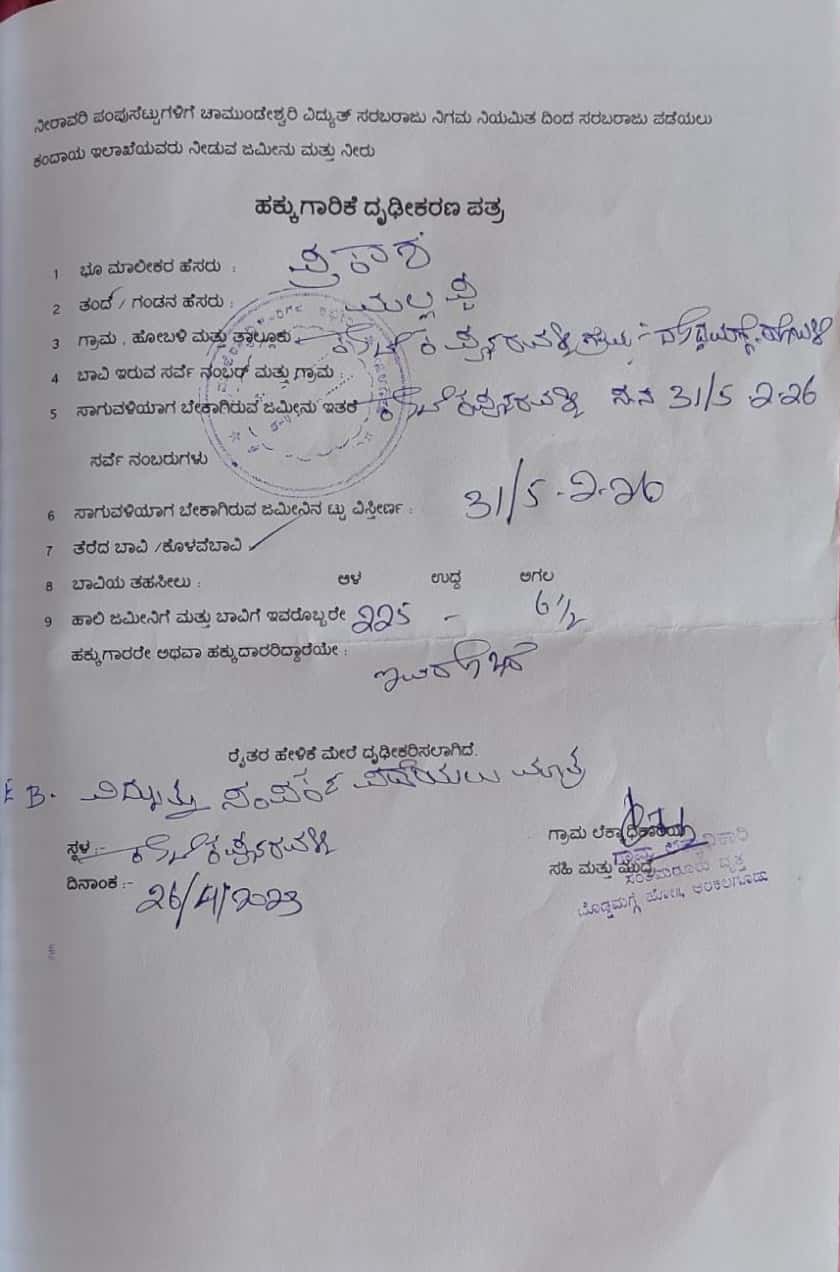 ನೀರಾವರಿ ಪಂಪುಸೆಟ್ಟುಗಳಿಗೆ ಚಾಮುಂಡೇಶ್ವರಿ ವಿದ್ಯುತ್ ಸರಬರಾಜು ನಿಗಮ ನಿಯಮಿತ ದಿಂದ ಸರಬರಾಜು ಪಡೆಯಲು
ಕಂದಾಯ ಇಲಾಖೆಯವರು ನೀಡುವ ಜಮೀನು ಮತ್ತು ನೀರು
ಹಕ್ಕುಗಾರಿಕೆ ದೃಢೀಕರಣ ಪತ್ರ
1 ಭೂ ಮಾಲೀಕರ ಹೆಸರು : ಪ್ರಕಾಶ
2 ತಂದೆ / ಗಂಡನ ಹೆಸರು : ಮಲ್ಲಪ್ಪ
3 ಗ್ರಾಮ , ಹೋಬಳಿ ಮತ್ತು ತಾಲ್ಲೂಕು
4 ಬಾವಿ ಇರುವ ಸರ್ವೆ ನಂಬರ್ ಮತ್ತು ಗ್ರಾಮ :
5 ಸಾಗುವಳಿಯಾಗ ಬೇಕಾಗಿರುವ ಜಮೀನು ಇತರೆ ಸ.ನ 31/5 2-26
ಸರ್ವೆ ನಂಬರುಗಳು
6 ಸಾಗುವಳಿಯಾಗ ಬೇಕಾಗಿರುವ ಜಮೀನಿನ ಟ್ಟು ವಿಸ್ತೀರ್ಣ : 31/5 - 2-26
7 ತೆರೆದ ಬಾವಿ /ಕೊಳವೆಬಾವಿ
8 ಬಾವಿಯ ತಹಸೀಲು : ಆಳ ಉದ್ದ ಅಗಲ
9 ಹಾಲಿ ಜಮೀನಿಗೆ ಮತ್ತು ಬಾವಿಗೆ ಇವರೊಬ್ಬರೇ 225 - 6½
ಹಕ್ಕುಗಾರರೇ ಅಥವಾ ಹಕ್ಕುದಾರರಿದ್ದಾರೆಯೇ : ಇವರೊಬ್ಬರೆ
ರೈತರ ಹೇಳಿಕೆ ಮೇರೆ ದೃಢೀಕರಿಸಲಾಗಿದೆ.
B. ವಿದ್ಯುತ್ತು ಸಂಪರ್ಕ ಪಡೆಯಲು ಮಾತ್ರ
ಸ್ಥಳ :-
ದಿನಾಂಕ :- 26/4/2023
ಗ್ರಾಮ ಲೆಕ್ಕಾಧಿಕಾರಿಯ
ಸಹಿ ಮತ್ತು ಮುದ್ರೆ
ದೊಡ್ಡಮಗ್ಗೆ ಹೋ||, ಅರಕಲಗೂಡು